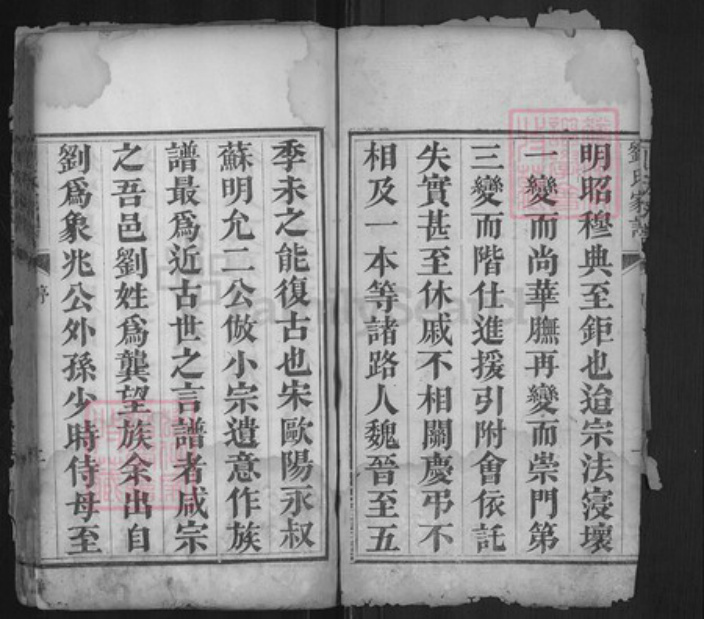 劉氏家譜
明昭穆典至鉅也迨宗法寖壞
一變而尚華膴再變而崇門第
三變而階仕進援引附會依託
失實甚至休戚不相關慶弔不
相及一本等諸路人魏晉至五
季未之能復古也宋歐陽永叔
蘇明允二公倣小宗遺意作族
譜最爲近古世之言譜者咸宗
之吾邑劉姓爲龔望族余出自
劉爲象兆公外孫少時侍母至
序
FamilySearch